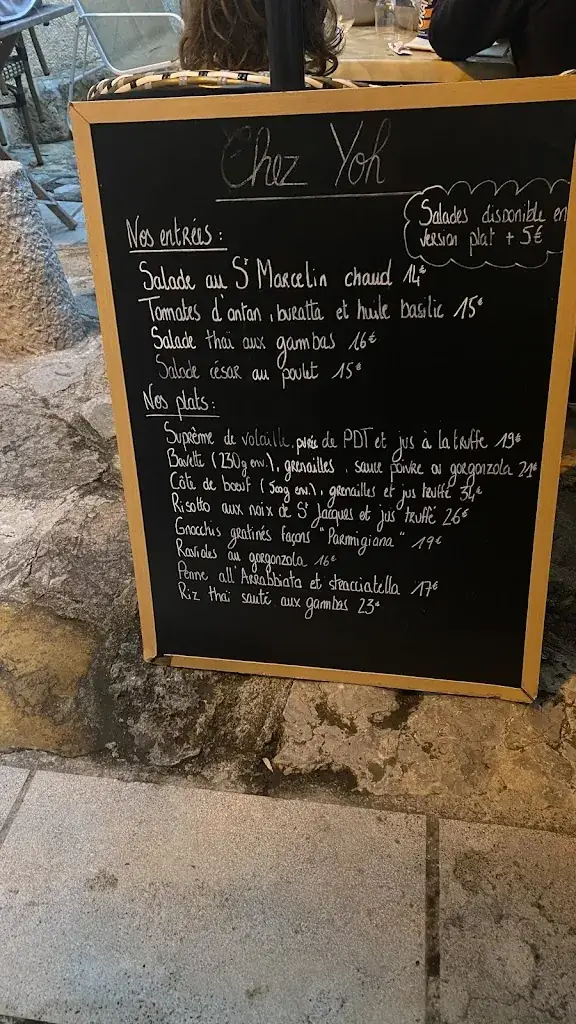 Chez Yoh
Salades disponible en
version plat + 5€
Nos entrées :
Salade au St Marcelin chaud 14€
Tomates d'antan, buratta et huile basilic 15€
Salade thaï aux gambas 16€
Salade césar au poulet 15€
Nos plats :
Suprême de volaille, purée de PDT et jus à la truffe 19€
Bavette (230g env.), grenailles, sauce poivre ou gorgonzola 21€
Côte de boeuf (500g env.), grenailles et jus truffé 34€
Risotto aux noix de St Jacques et jus truffé 26€
Gnocchis gratinés façons "Parmigiana" 19€
Ravioles au gorgonzola 16€
Penne all'Arrabbiata et stracciatella 17€
Riz thaï sauté aux gambas 23€